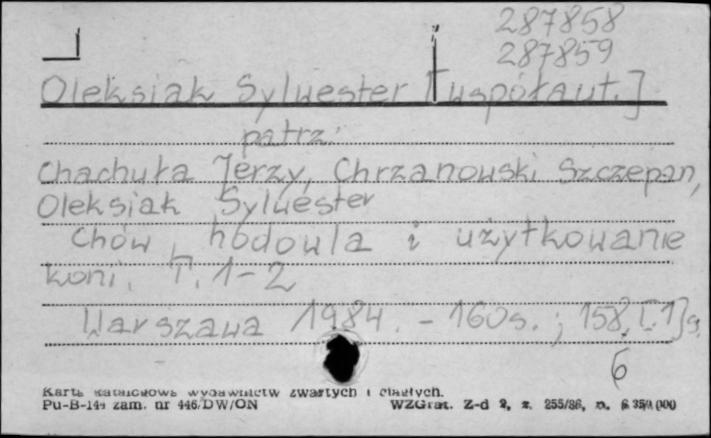 287858
287859
Oleksiak Sylwester [współaut.]
patrz:
Chachuła Jerzy, Chrzanowski Szczepan,
Oleksiak Sylwester
Chów, hodowla i użytkowanie
koni. T. 1-2
Warszawa 1984. - 160 s. ; 158, [1] s.
6
Karta katalogowa wydawnictw zwartych i ciągłych.
Pu-B-144 zam. nr 446/DW/ON WZGraf. Z-d 2, z. 255/86, n. 6 350 000